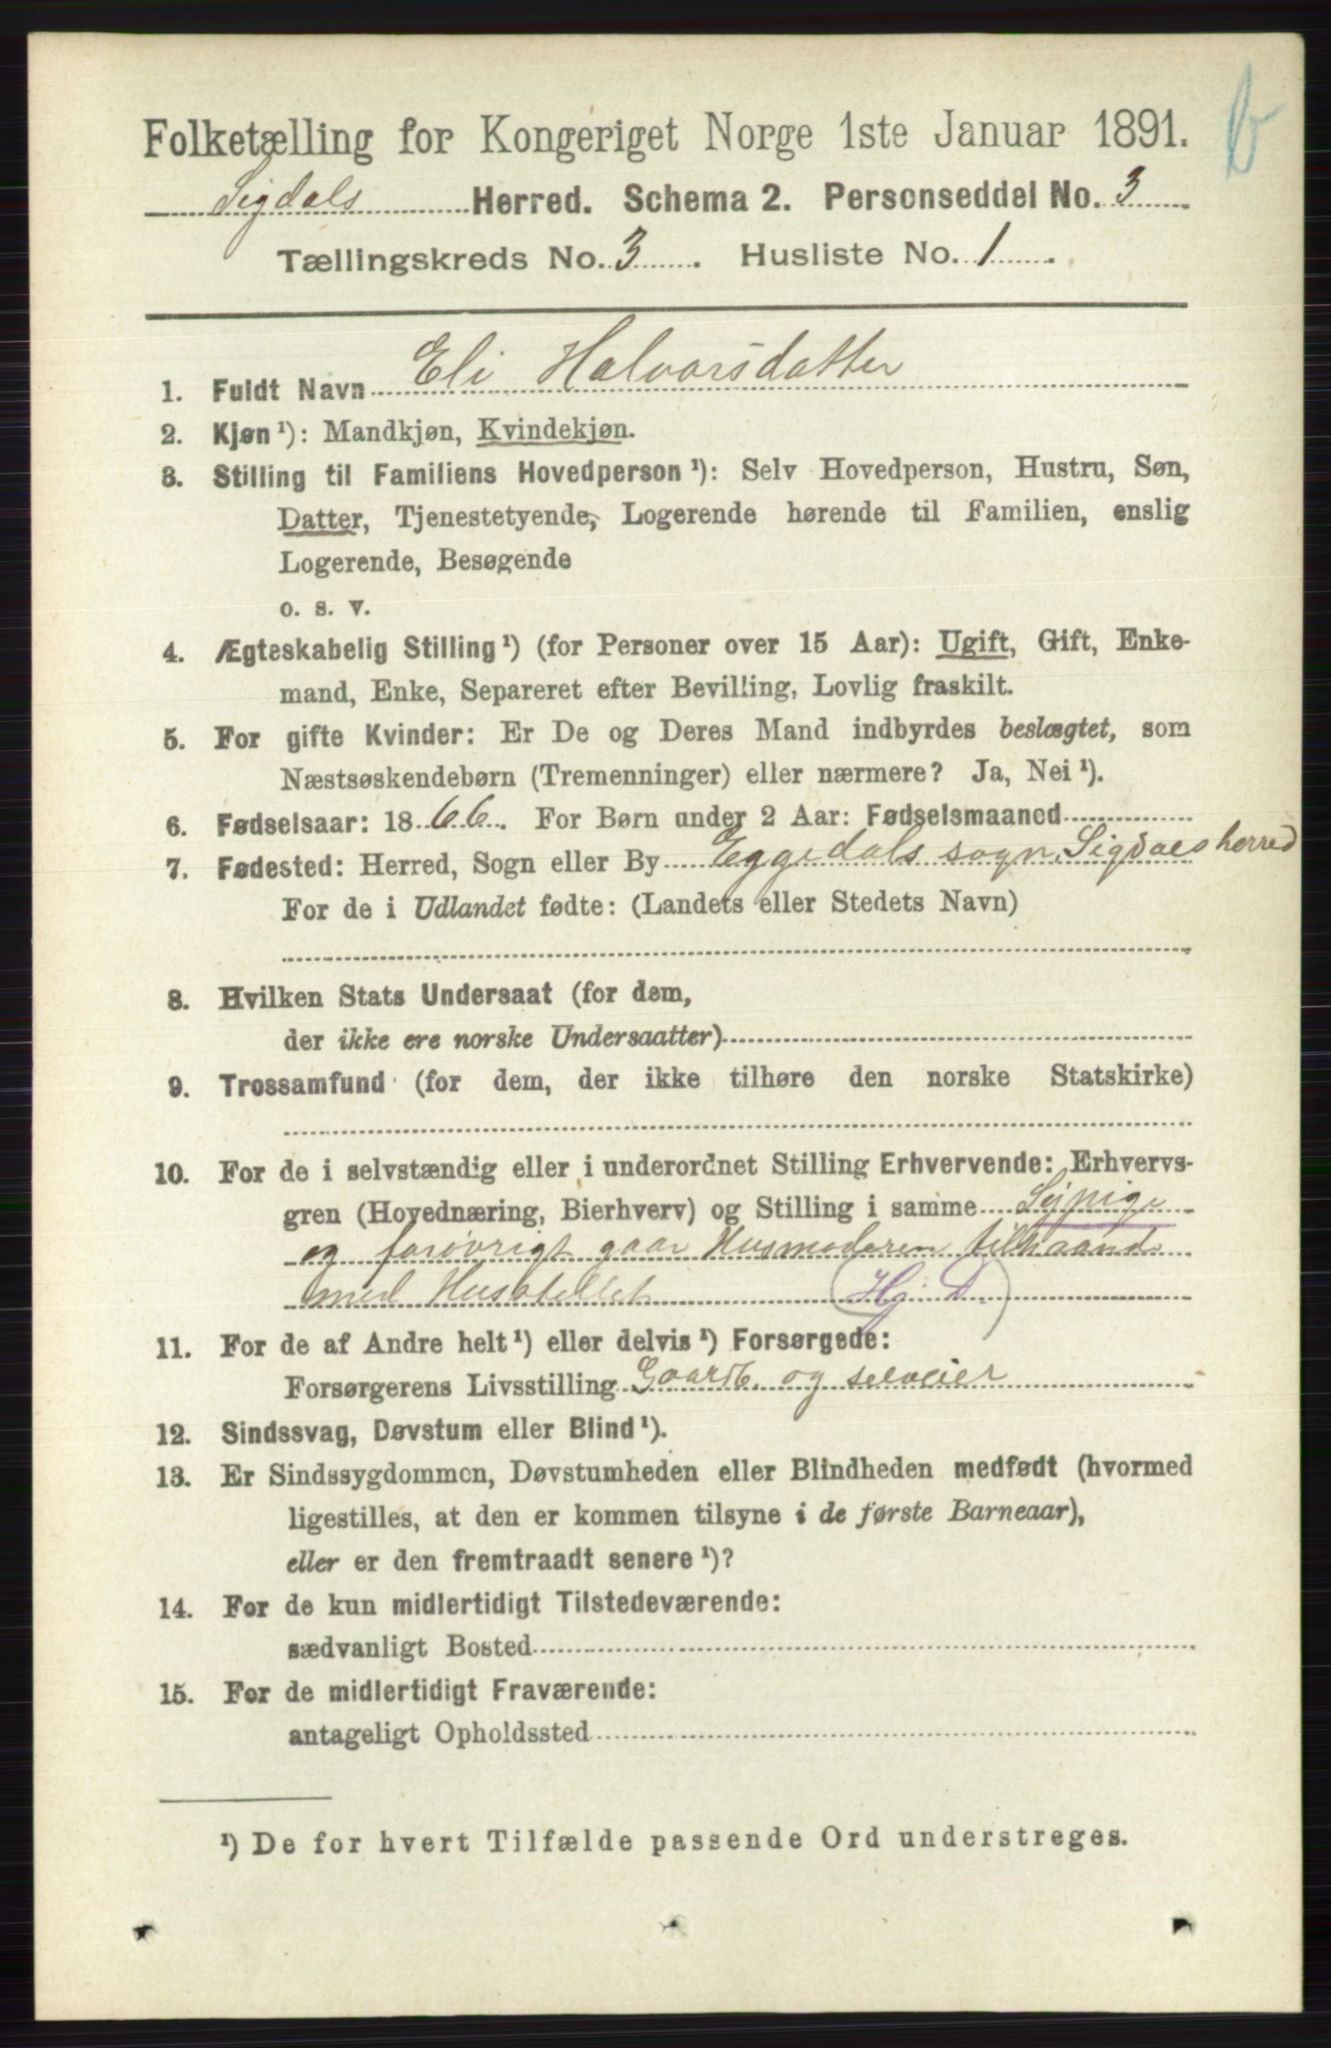 b
Folketælling for Kongeriget Norge 1ste Januar 1891.
Sigdals Herred. Schema 2. Personseddel No. 3
Tællingskreds No. 3. Husliste No. 1.
1. Fuldt Navn Eli Halvorsdatter
2. Kjøn¹): Mandkjøn, Kvindekjøn.
3. Stilling til Familiens Hovedperson¹): Selv Hovedperson, Hustru, Søn,
Datter, Tjenestetyende, Logerende hørende til Familien, enslig
Logerende, Besøgende
o. s. v.
4. Ægteskabelig Stilling¹) (for Personer over 15 Aar): Ugift, Gift, Enke-
mand, Enke, Separeret efter Bevilling, Lovlig fraskilt.
5. For gifte Kvinder: Er De og Deres Mand indbyrdes beslægtet, som
Næstsøskendebørn (Tremenninger) eller nærmere? Ja, Nei¹).
6. Fødselsaar: 1866. For Børn under 2 Aar: Fødselsmaaned
7. Fødested: Herred, Sogn eller By Eggedals sogn, Sigdals herred
For de i Udlandet fødte: (Landets eller Stedets Navn)
8. Hvilken Stats Undersaat (for dem,
der ikke ere norske Undersaatter)
9. Trossamfund (for dem, der ikke tilhøre den norske Statskirke)
10. For de i selvstændig eller i underordnet Stilling Erhvervende: Erhvervs-
gren (Hovednæring, Bierhverv) og Stilling i samme Sypige
og forøvrigt gaar Husmoderen tilhaande
med Husstellet (Hj. D.)
11. For de af Andre helt¹) eller delvis¹) Forsørgede:
Forsørgerens Livsstilling Gaardb. og selveier
12. Sindssvag, Døvstum eller Blind¹).
13. Er Sindssygdommen, Døvstumheden eller Blindheden medfødt (hvormed
ligestilles, at den er kommen tilsyne i de første Barneaar),
eller er den fremtraadt senere¹)?
14. For de kun midlertidigt Tilstedeværende:
sædvanligt Bosted
15. For de midlertidigt Fraværende:
antageligt Opholdssted
¹) De for hvert Tilfælde passende Ord understreges.